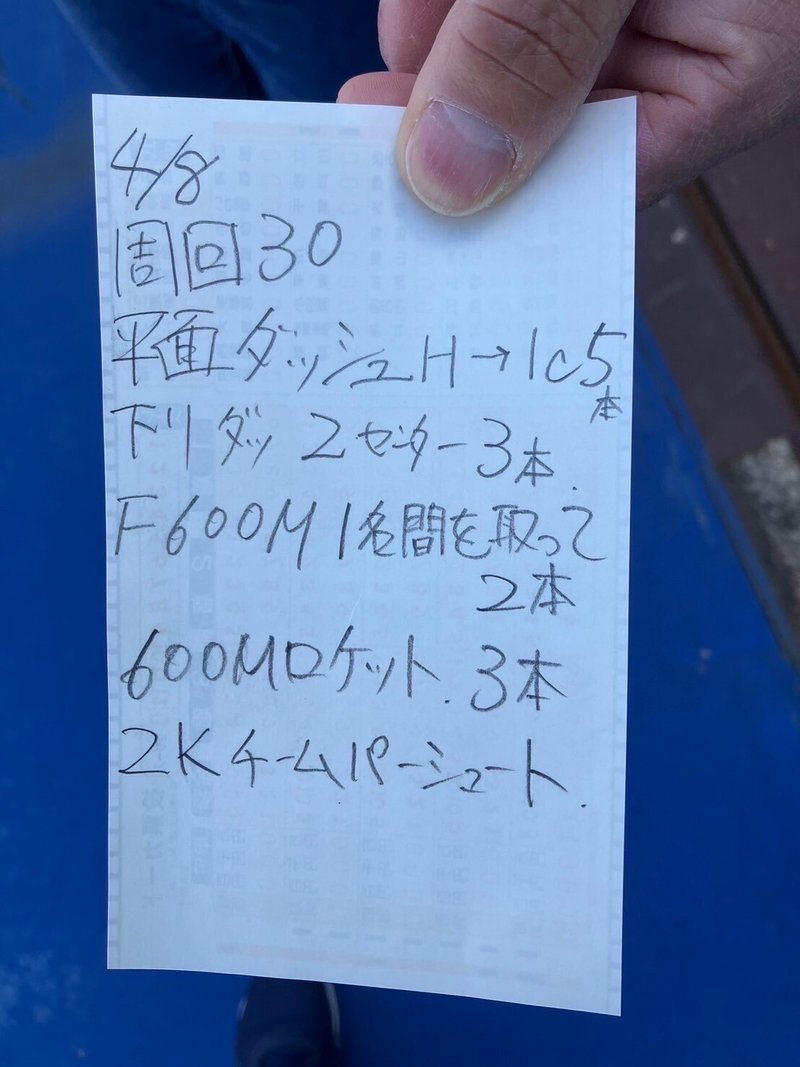 4/8
周回30
平面ダッシュH→1c5本
下リダッ 2センター3本.
F600M 1名間を取って
2本
600Mロケット.3本
2Kチームパーシュート.